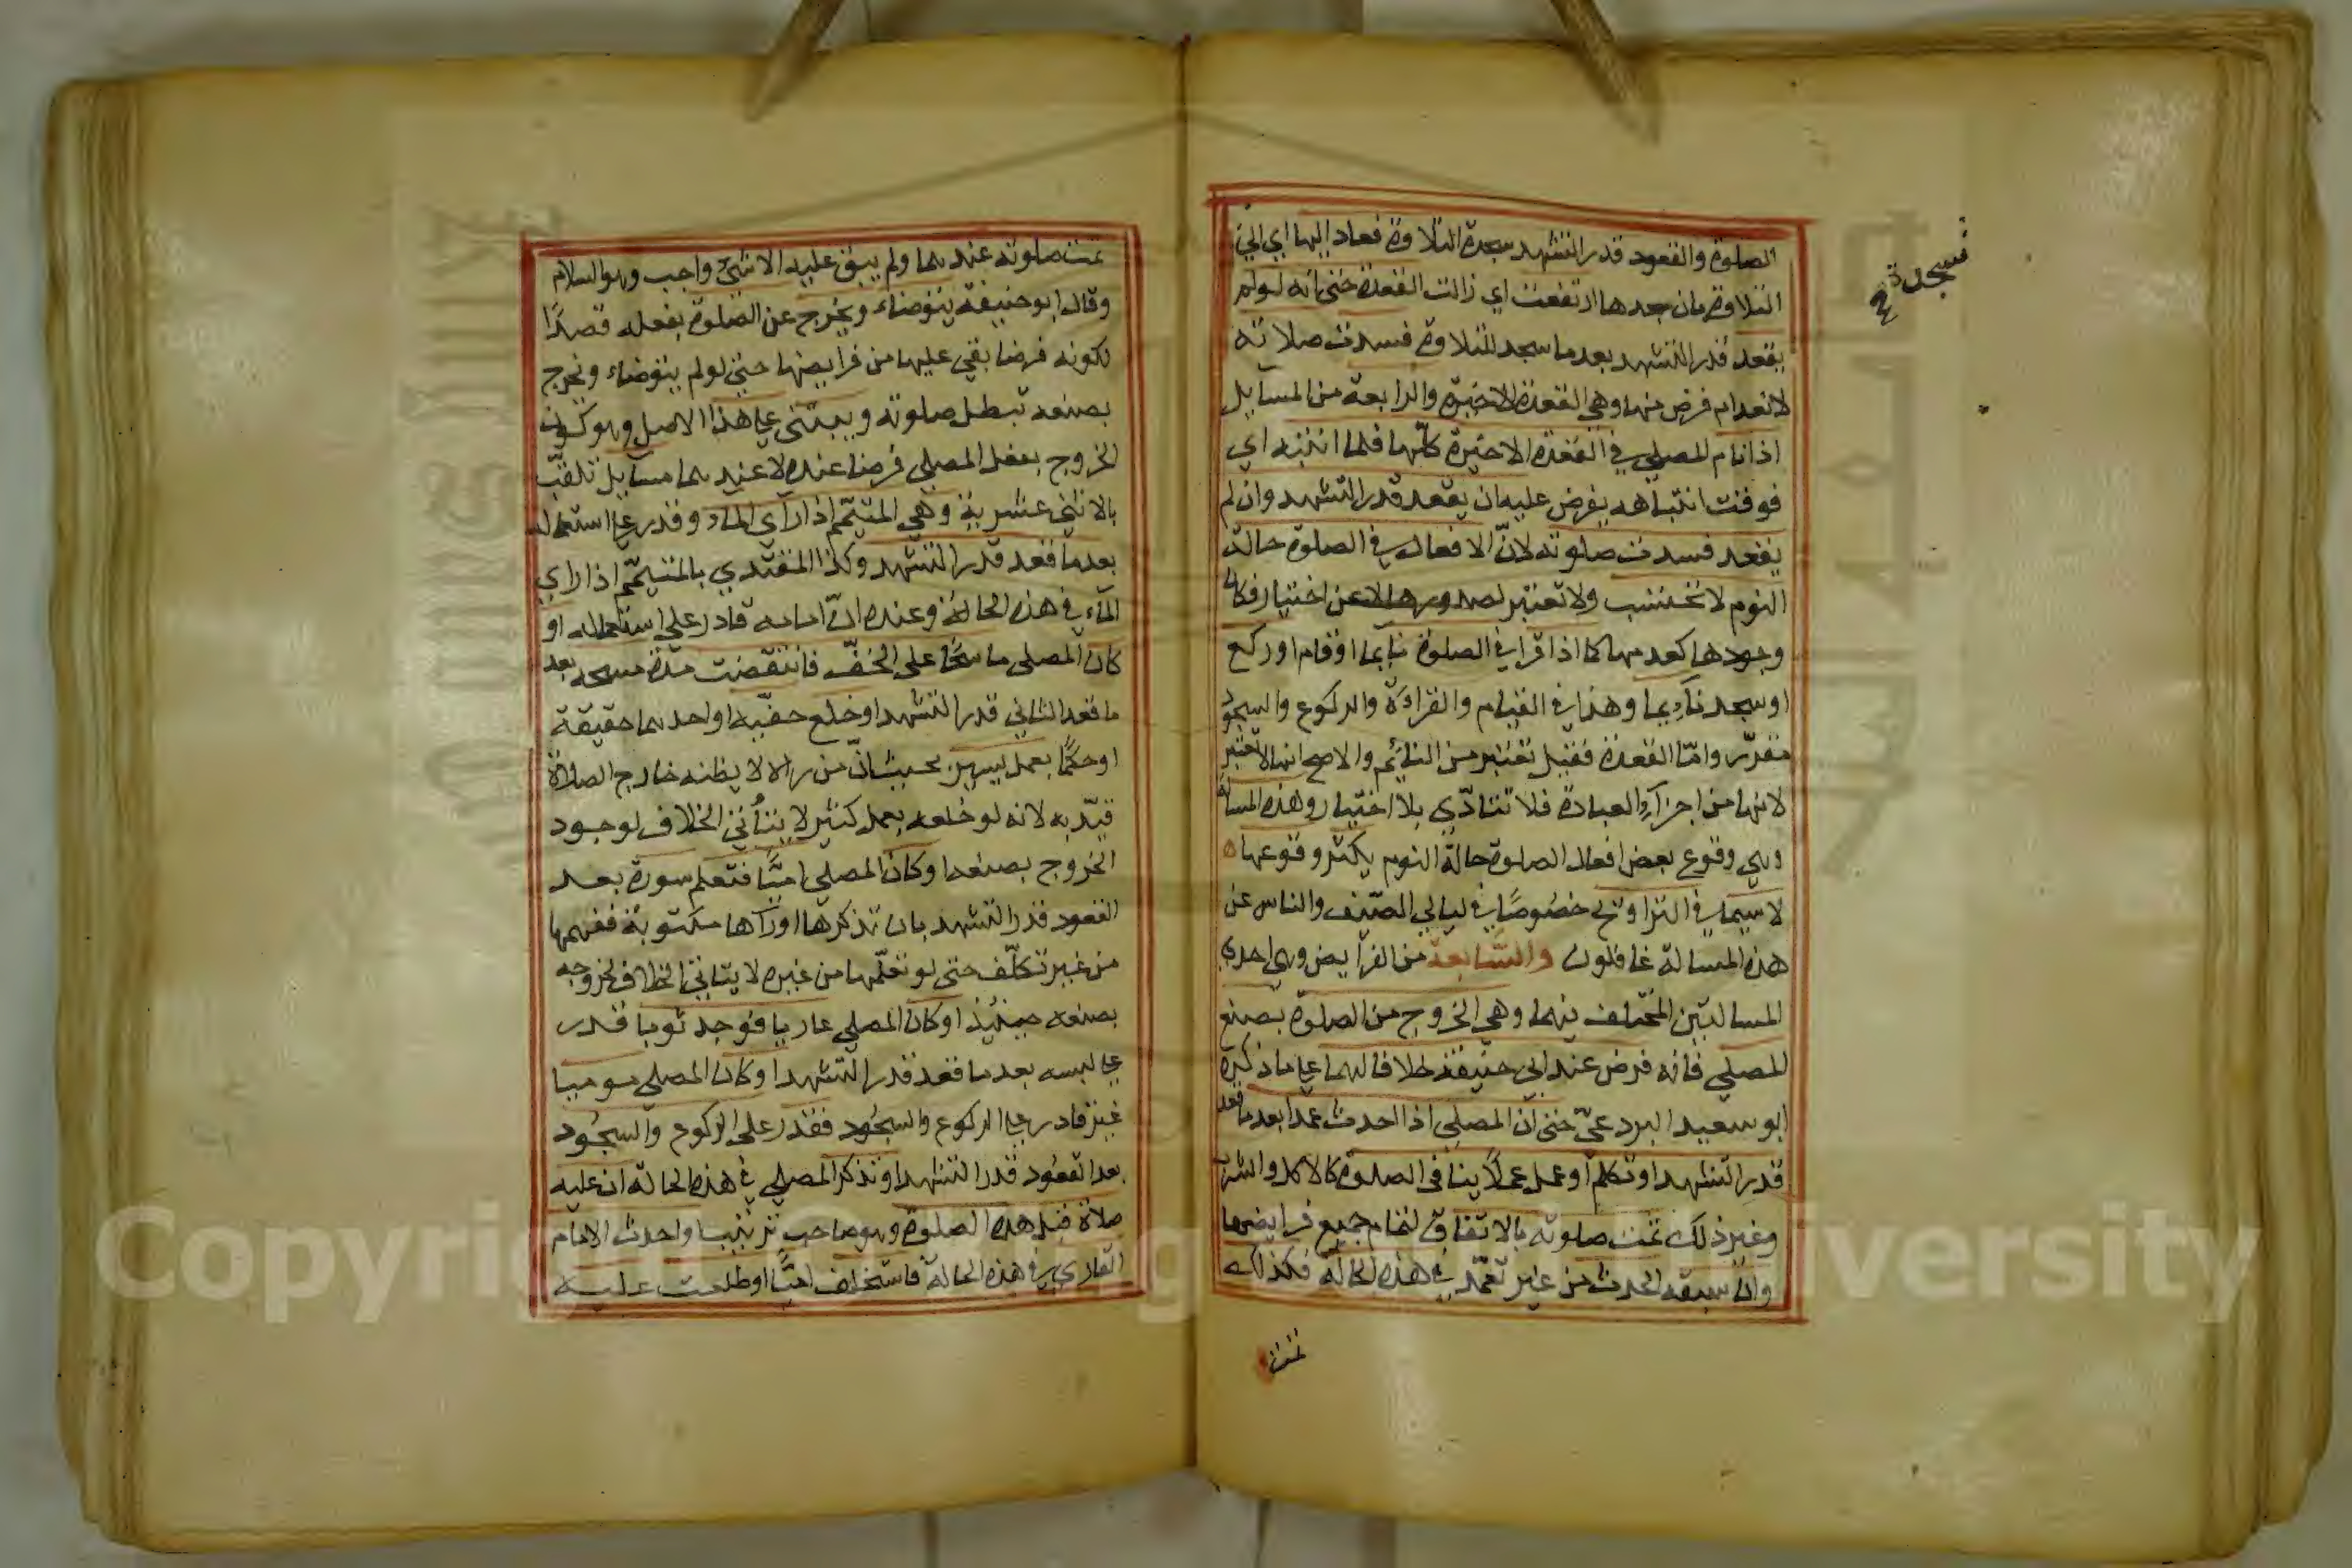 الصلوة والقعود قدر التشهد سجدة التلاوة فعاد اليها اي الي
التلاوة بان سجدها ارتفعت اي زالت القعدة حتي انه لو لم
يقعد قدر التشهد بعد ما سجد للتلاوة فسدت صلاته
لانعدام فرض منها وهي القعدة الاخيرة والرابعة من المسايل
اذا نام المصلي في القعدة الاخيرة كلّها فلما انتبه اي
فوقت انتباهه يفرض عليه ان يقعد قدر التشهد وان لم
يقعد فسدت صلوته لانّ الافعال في الصلوة حالة
النوم لا تحتسب ولا تعتبر لصدورها لا عن اختيار فكان
وجودها كعدمها كما اذا قرا في الصلوة نايما او قام او ركع
او سجد نايما وهذا في القيام والقراءة والركوع والسجود
مقدّر وامّا القعدة فقيل تعتبر من النائم والاصح انها لا تعتبر
لانها من اجزاء العبادة فلا تتادّي بلا اختيار وهذه المسالة
وهي وقوع بعض افعال الصلوة حالة النوم يكثر وقوعها
لا سيما في التراويح خصوصًا في ليالي الصيف والناس عن
هذه المسالة غافلون والسّابعة من الفرايض وهي احدي
المسالتين المختلف فيهما وهي الخروج من الصلوة بصنع
المصلي فانه فرض عند ابي حنيفة خلافا لهما علي ما ذكره
ابو سعيد البردعيّ حتي انّ المصلي اذا احدث عمدا بعد ما قعد
قدر التشهد او تكلم او عمل عملًا ينافي الصلوة كالاكل والشرب
وغير ذلك تمت صلوته بالاتفاق لتمام جميع فرايضها
وان سبقه الحدث من غير تعمّد في هذه الحالة فكذلك
تمت
فسجدة
تمت صلوته عندهما ولم يبق عليه الا شيء واجب وهو السلام
وقال ابو حنيفة يتوضاء ويخرج عن الصلوة بفعله قصدًا
لكونه فرضا بقي عليها من فرايضها حتي لو لم يتوضاء ويخرج
بصنعه تبطل صلوته ويبتني علي هذا الاصل وهو كون
الخروج بفعل المصلي فرضا عنده لا عندهما مسايل تلقّب
بالاثني عشرية وهي المتيمّم اذا راي الماء وقدر علي استعماله
بعد ما قعد قدر التشهد وكذا المقتدي بالمتيمّم اذا راي
الماء في هذه الحالة وعنده انّ امامه قادر علي استعماله او
كان المصلي ماسحًا علي الخفّ فانتقضت مدة مسحه بعد
ما قعد الثاني قدر التشهد او خلع خفّيه او احدهما حقيقة
او حكمًا بعمل يسير بحيث انّ من راه لا يظنه خارج الصلاة
قيّد به لانه لو خلعه بعمل كثير لا يتأتي الخلاف لوجود
الخروج بصنعه او كان المصلي اميًّا فتعلم سورة بعد
القعود قدر التشهد بان تذكرها او رآها مكتوبة ففهمها
من غير تكلّف حتي لو تعلّمها من غيره لا يتاتي الخلاف لخروجه
بصنعه حينئذ او كان المصلي عاريا فوجد ثوبا قدر
علي لبسه بعد ما قعد قدر التشهد او كان المصلي موميا
غير قادر علي الركوع والسجود فقدر علي الركوع والسجود
بعد القعود قدر التشهد او تذكر المصلي في هذه الحالة ان عليه
صلاة قبل هذه الصلوة وهو صاحب ترتيب او احدث الامام
القاري في هذه الحالة فاستخلف اميًّا او طلعت عليه